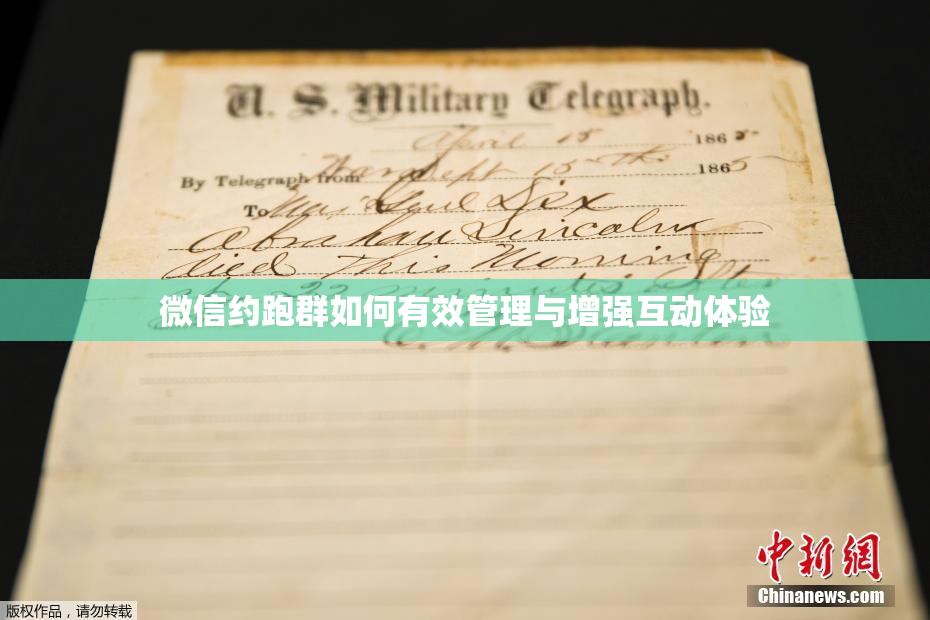 U. S. Military Telegraph.
April 15 1865
By Telegraph from War Dept 15th 1865
To Maj Genl Dix
Abraham Lincoln
died This Morning
at 22 minutes after
微信约跑群如何有效管理与增强互动体验
E. M. Stanton
中新网
Chinanews.com
版权作品,请勿转载